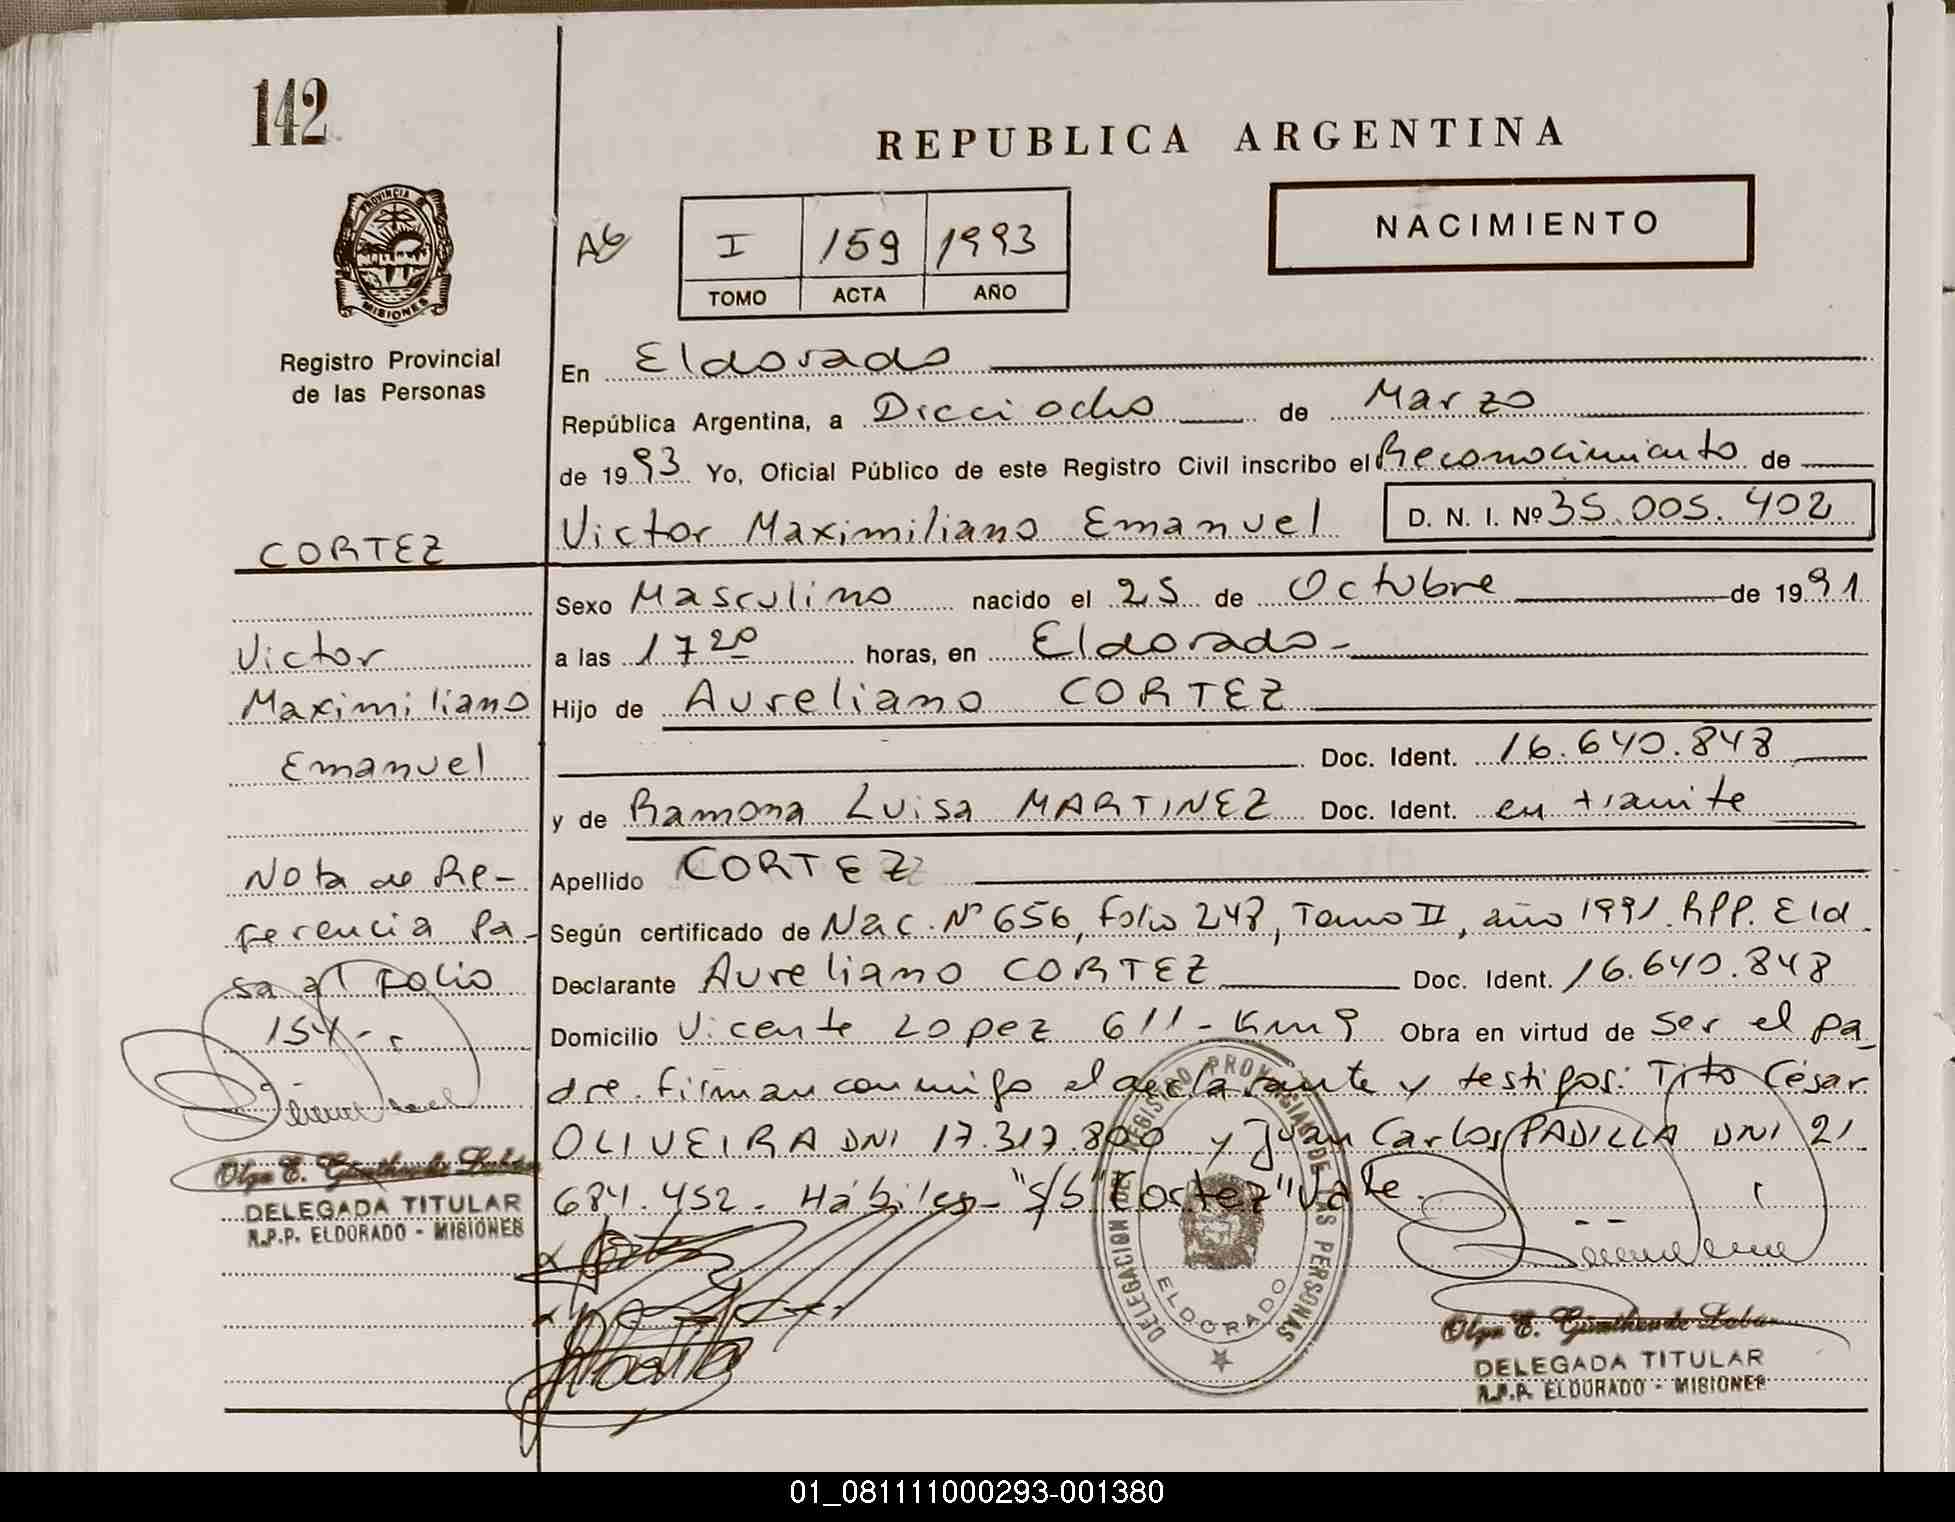 142
REPUBLICA ARGENTINA
PROVINCIA DE MISIONES
Registro Provincial
de las Personas
I 159 1993
TOMO ACTA AÑO
NACIMIENTO
En Eldorado
República Argentina, a Dieciocho de Marzo
de 1993 Yo, Oficial Público de este Registro Civil inscribo el Reconocimiento de
Victor Maximiliano Emanuel D. N. I. Nº 35.005.402
CORTEZ
Sexo Masculino nacido el 25 de Octubre de 1991
Victor
a las 17 20 horas, en Eldorado-
Maximiliano
Hijo de Aureliano CORTEZ
Emanuel
Doc. Ident. 16.640.848
y de Ramona Luisa MARTINEZ Doc. Ident. en tramite
Nota de Re-
Apellido CORTEZ
ferencia Pa-
Según certificado de Nac. Nº 656, Folio 248, Tomo II, año 1991. RPP. Eld.
sa al Folio
Declarante Aureliano CORTEZ Doc. Ident. 16.640.848
154-
Domicilio Vicente Lopez 611 - Km 9 Obra en virtud de ser el pa_
dre. Firman conmigo el declarante y testigos: Tito César
OLIVEIRA DNI 17.317.800 y Juan Carlos PADILLA DNI 21
684.452. Hábiles- "s/b "Cortez" Vale.
Olga E.
DELEGADA TITULAR
R.P.P. ELDORADO - MISIONES
DELEGACION DEL REGISTRO PROVINCIAL DE LAS PERSONAS
ELDORADO
Olga E.
DELEGADA TITULAR
R.P.P. ELDORADO - MISIONES
01_081111000293-001380